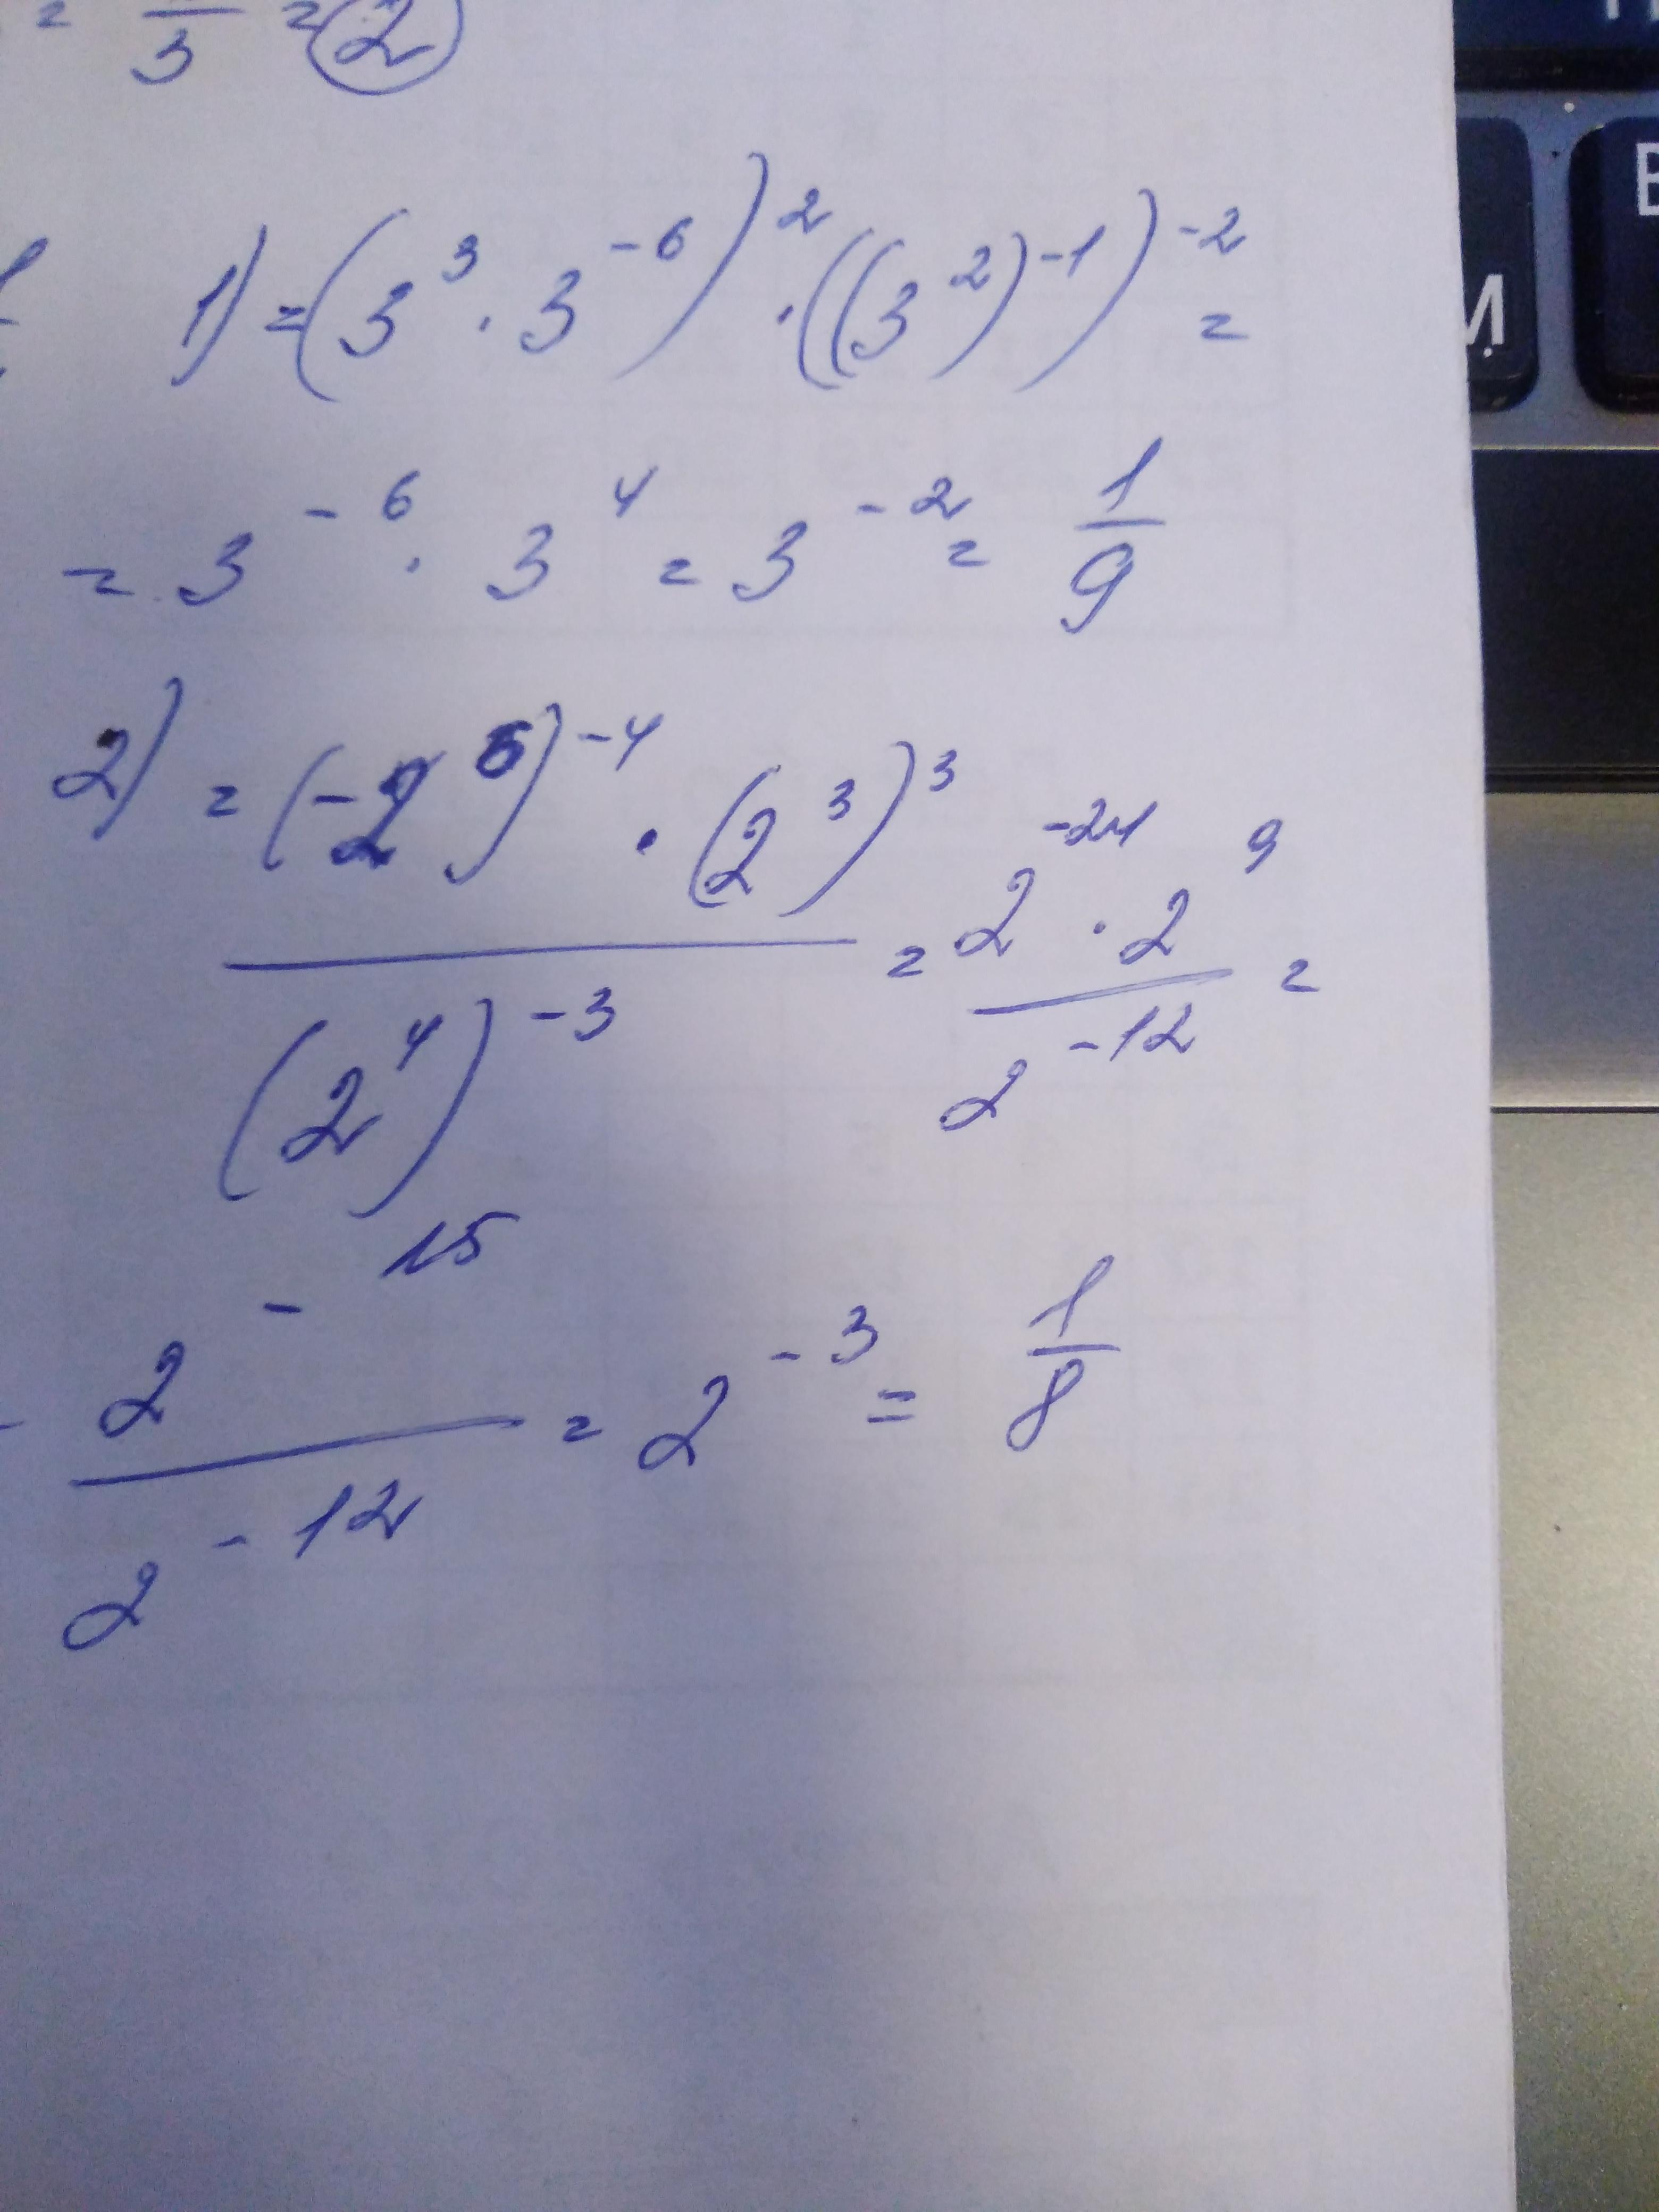 = — 3 = 2
1) = (3³ · 3⁻⁶)² · ((3²)⁻¹)⁻² =
= 3⁻⁶ · 3⁴ = 3⁻² = 1/9
2) = (-2⁶)⁻⁴ · (2³)³ / (2⁴)⁻³ = 2⁻²⁴ · 2⁹ / 2⁻¹² =
2⁻¹⁵ / 2⁻¹² = 2⁻³ = 1/8
И